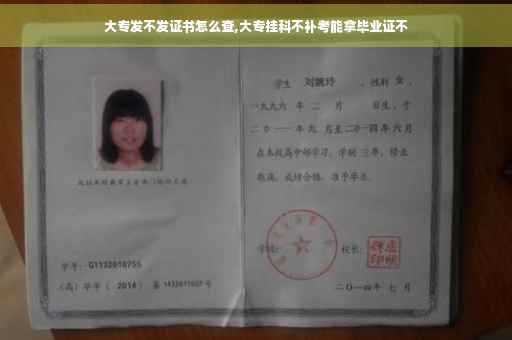 大专发不发证书怎么查,大专挂科不补考能拿毕业证不
学生 刘婉玲 ，性别 女 ，
一九九六 年 二 月 日生，于
二〇一一年九 月至二〇一四年六月
在本校高中部学习，学制 三年，修业
期满，成绩合格，准予毕业。
学校： 校长：
学号：G1132010755
（高）毕字（ 2014 ）第 1432011027 号
二〇一四年 七 月